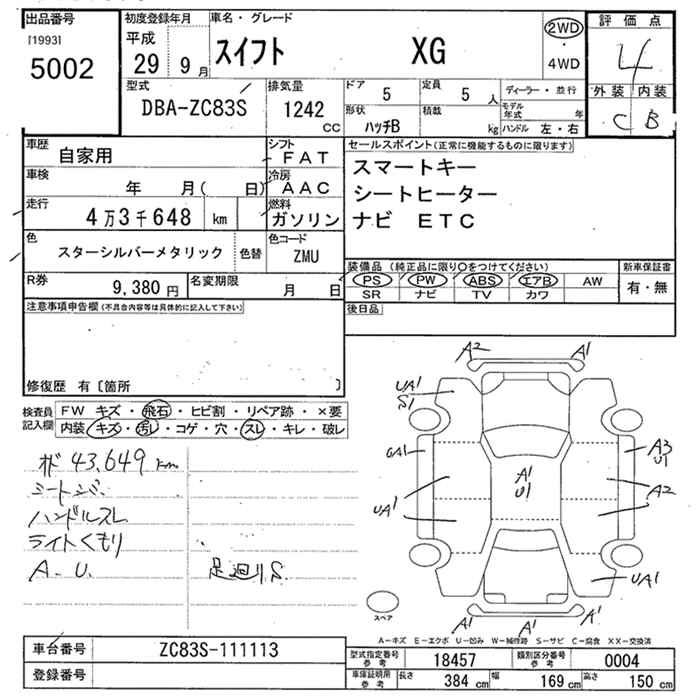 出品番号 初度登録年月 車名・グレード 評価点
[1993] 平成
5002 29 9月 スイフト XG 2WD・4WD 4
型式 排気量 ドア 定員 ディーラー・並行 外装 内装
DBA-ZC83S 1242 CC 5 5人 モデル年式 年 C B
形状 積載 ハンドル 左・右
ハッチB kg
車歴 自家用 シフト FAT セールスポイント(正常に機能するものに限ります)
車検 年 月( 日) 冷房 AAC スマートキー
シートヒーター
走行 4万3千648 km 燃料 ガソリン ナビ ETC
色 スターシルバーメタリック 色替 色コード ZMU
装備品 (純正品に限り○をつけてください) 新車保証書
R券 9,380円 名変期限 月 日 PS PW ABS エアB AW 有・無
SR ナビ TV カワ
注意事項申告欄(不具合内容等は具体的に記入して下さい) 後日品
修復歴 有〔箇所 〕
検査員記入欄 FW キズ・飛石・ヒビ割・リペア跡・×要
内装 キズ・汚レ・コゲ・穴・スレ・キレ・破レ
43,649 km
ハンドルスレ
ライトくもり
A.U. 足廻りS.
A2 A1
UA1
S1
GA1 A3
U1
A1
U1 A2
UA1
UA1
A1 A1 A1
スペア
A-キズ E-エクボ U-凹み W-補修跡 S-サビ C-腐食 XX-交換済
車台番号 ZC83S-111113 型式指定番号 参考 18457 類別区分番号 参考 0004
登録番号 車庫証明用 参考 長さ 384 cm 幅 169 cm 高さ 150 cm